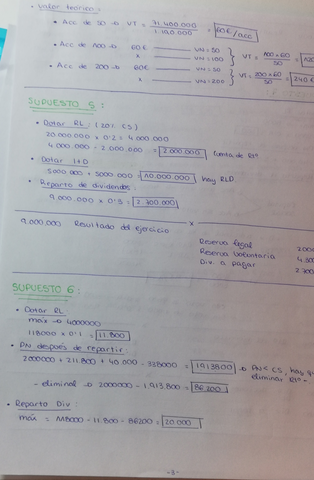 • Valor teórico:
• Acc de 50 → VT = 71.400.000 / 1.190.000 = 60€/acc
• Acc de 100 → 60€ — VN=50
x — VN=100 } VT = 100×60 / 50 =
• Acc de 200 → 60€ — VN=50
x — VN=200 } VT = 200×60 / 50 = 240€
SUPUESTO 5:
• Dotar RL: (20% CS)
20.000.000 × 0'2 = 4.000.000
4.000.000 - 2.000.000 = 2.000.000
• Dotar I+D
5000000 + 5000000 = 10.000.000 hay RLD
• Reparto de dividendos:
9.000.000 × 0'3 = 2.700.000
9.000.000 Resultado del ejercicio x
Reserva legal
Reserva voluntaria
Div. a pagar
SUPUESTO 6:
• Dotar RL
máx → 4000000
118000 × 0'1 = 11.800
• PN después de repartir:
2000000 + 211.800 + 40.000 - 338000 = 1913800 → PN < CS, hay
eliminar
- eliminal → 2000000 - 1.913.800 = 86.200
• Reparto Div:
máx = 118000 - 11.800 - 86200 = 20.000
-3-